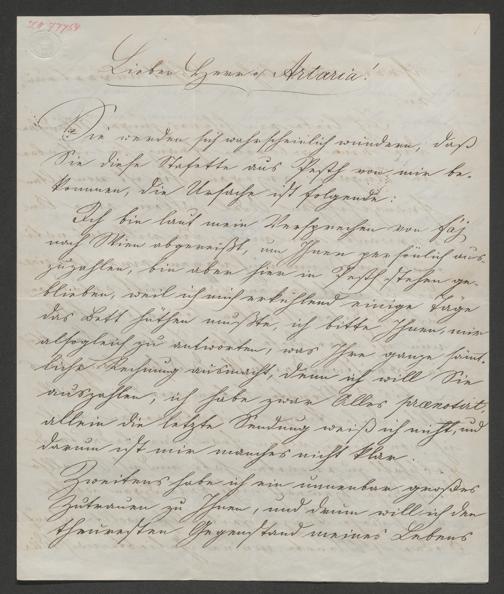 I.N. 77754
1
Lieber Herr v Artaria!
Sie werden sich wahrscheinlich wundern, daß
Sie diese Stafette aus Pesth von mir be-
kommen, die Ursache ist folgende:
Ich bin laut mein Versprechen von Fáj
nach Wien abgereißt, um Ihnen persönlich aus-
zuzahlen, bin aber hier in Pesth stehen ge-
blieben, weil ich mich erkühlend einige Täge
das Bett hüthen mußte, ich bitte Ihnen, mir
alsogleich zu antworten, was Ihre ganze sämt-
liche Rechnung ausmacht, denn ich will Sie
auszahlen, ich habe zwar Alles praenotirt,
allein die letzte Sendung weiß ich nicht, und
darum ist mir manches nicht klar.
Zweitens habe ich ein unnenbar großes
Zutrauen zu Ihnen, und drum will ich den
theuresten Gegenstand meines Lebens